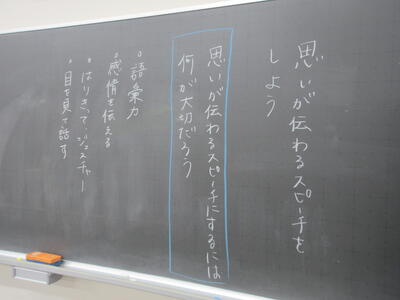 思いが伝わるスピーチを
しよう
思いが伝わるスピーチにするには
何が大切だろう
・語彙力
・感情を伝える
・はりきって、ジェスチャー
・目を見て話す